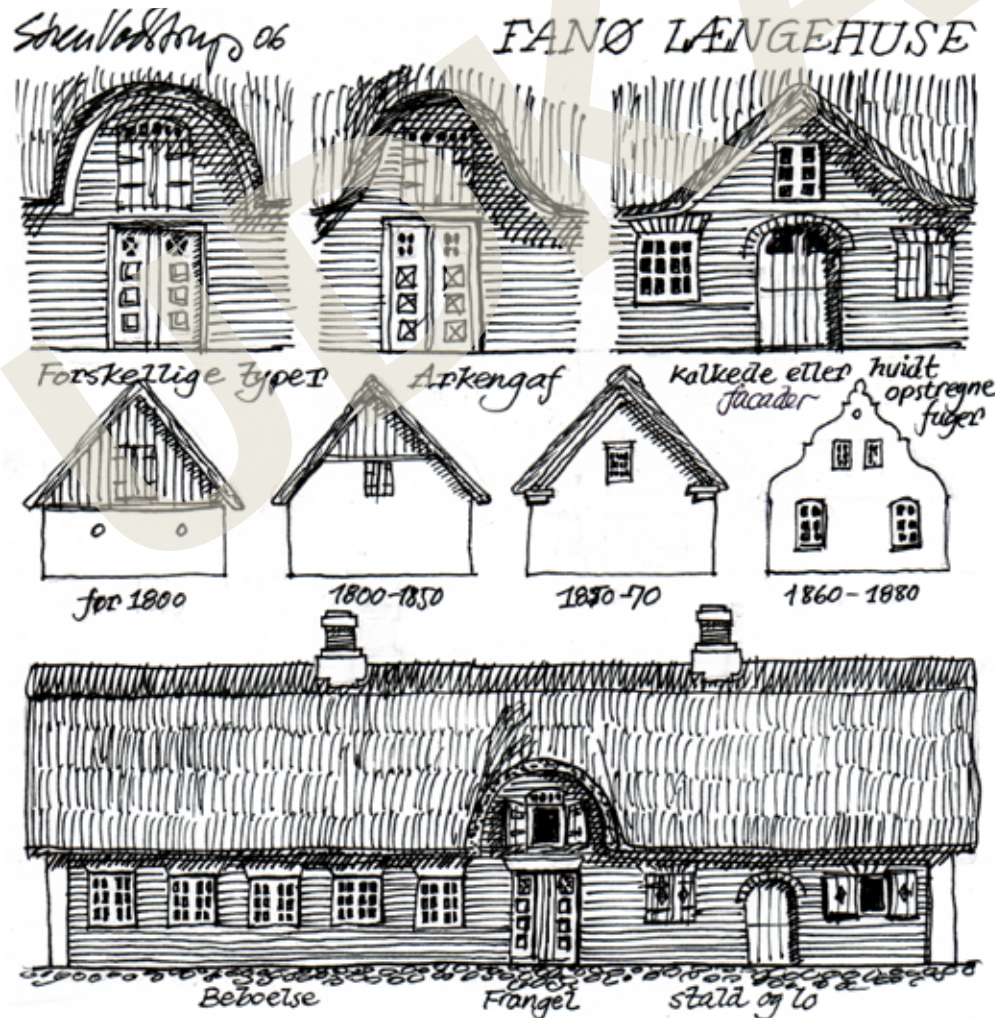 Søren Vadstrup 06
FANØ LÆNGEHUSE
Forskellige typer Arkengaf
kalkede eller hvidt
facader opstregne
fuger
før 1800
1800-1850
1850-70
1860-1880
Beboelse
Frangel
stald og lo
UDKA